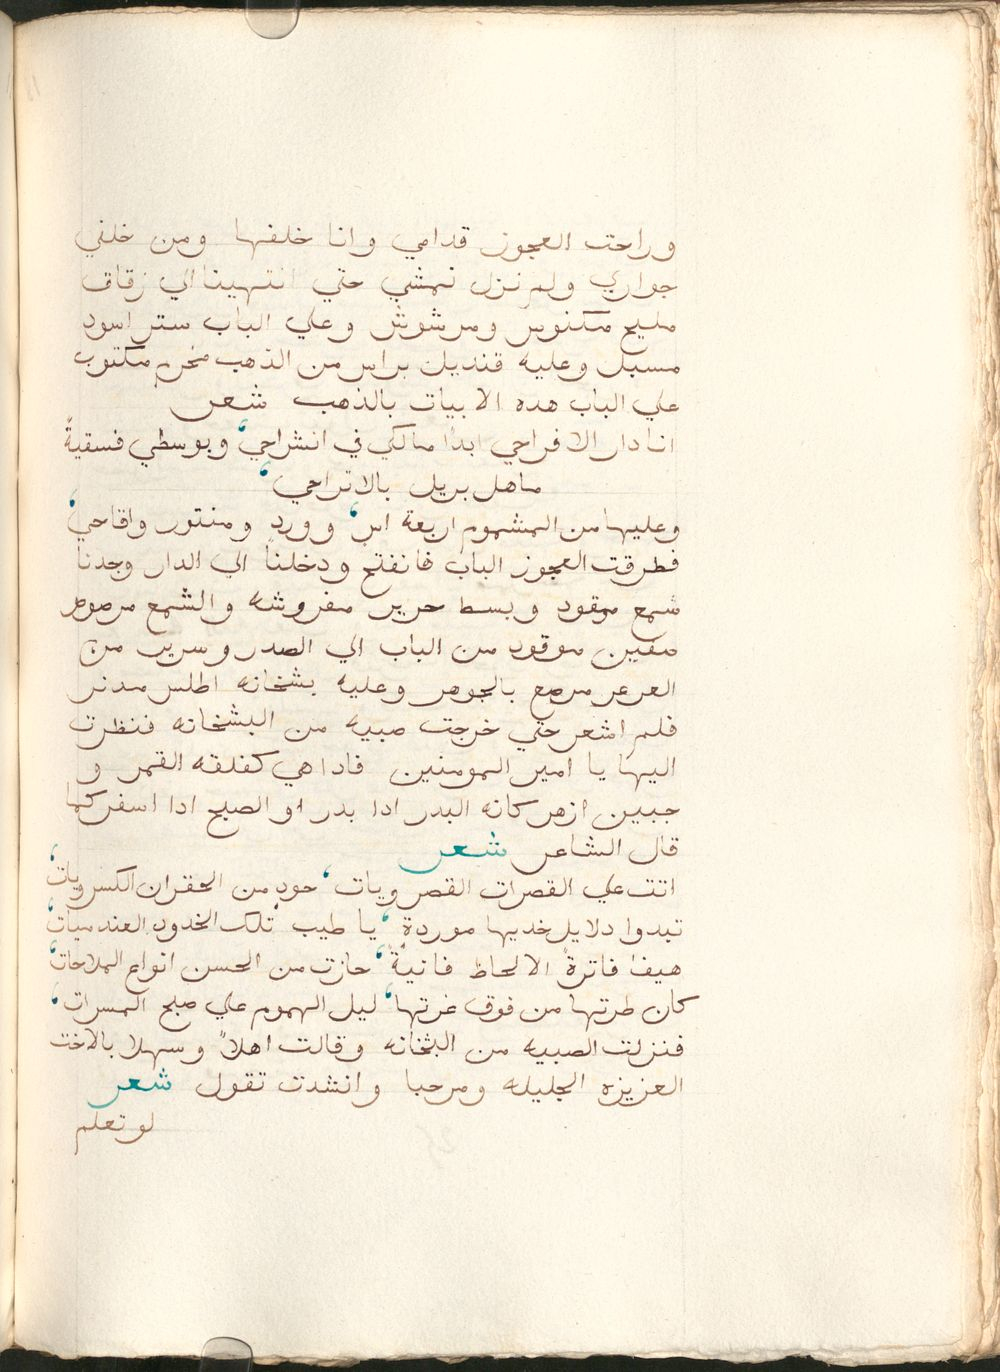 وراحت العجوز قدامي وانا خلفها ومن خلفي
جواري ولم نزل نمشي حتي انتهينا الي زقاق
مليح مكنوس ومرشوش وعلي الباب ستر اسود
مسبل وعليه قنديل براس من الذهب مخرم مكتوب
علي الباب هده الابيات بالذهب شعر
انا دار الافراحي ابدًا مالكي في انشراحي، وبوسطي فسقيةً
ماهل بريل بالاتراحي،
وعليها من المشموم اربعة اس، وورد ومنتور واقاحي،
فطرقت العجوز الباب فانفتح ودخلنا الي الدار وجدنا
شمع موقود وبسط حرير مفروشه والشمع مرصوص
صفين موقود من الباب الي الصدر وسرير من
العرعر مرصع بالجوهر وعليه بشخانه اطلس مدنر
فلم اشعر حتي خرجت صبيه من البشخانه فنظرت
اليها يا امير المومنين فاداهي كفلقه القمر و
جبين ازهر كانه البدر ادا بدر او الصبح ادا اسفر كما
قال الشاعر شعر
اتت علي القصرات القصرويات، خود من الحقران الكسرويات،
تبدوا دلايل خديها موردةٍ، يا طيب تلك الخدود العندميات،
هيفا فاترةً الالحاظ فانيةً، حازت من الحسن انواع الملاحات،
كان طرتها من فوق غرتها، ليل الهموم علي صبح المسرات،
فنزلت الصبيه من البشخانه وقالت اهلاً وسهلا بالاخت
العزيزه الجليله ومرحبا وانشدت تقول شعر
لو تعلم